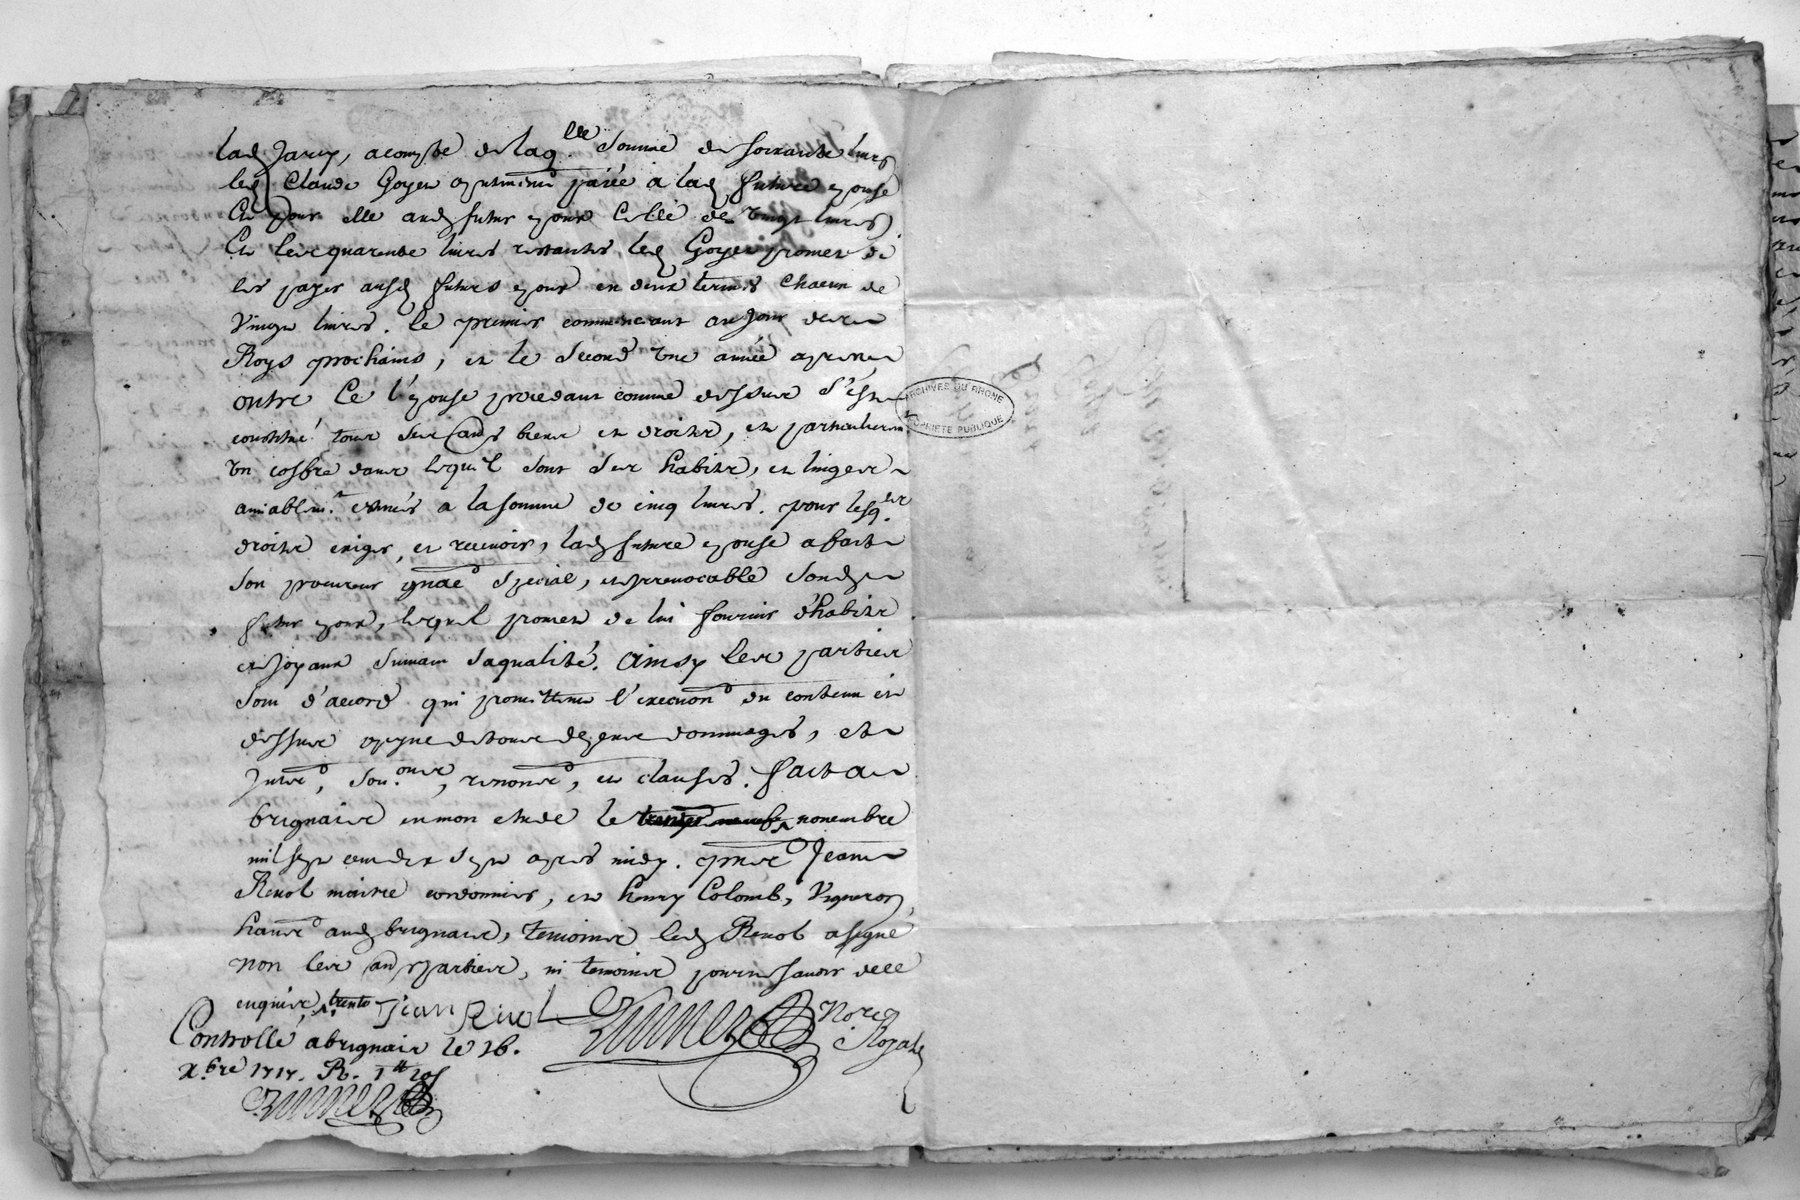 lad Jarcy, acompte de laq.lle somme de soixante livres
led Claude Goyer a payée a lad future epouse
Et pour elle aud futur epoux Celle de vingt livres
Et les quarente livres restantes, led Goyer promet de
les payer ausd futurs epoux en deux termes chacun de
Vingt livres. le premier commencant au jour des
Roys prochains, et le second une année apres
outre Ce l'epouse procedant comme dessus s'est
constitué tous ses biens et droits, et particulierem.
un coffre dans lequel sont ses habits, et linges
amiablem.t estimés a la somme de cinq livres. pour lesq.
droits exiger, et recevoir, lad future epouse a fait
son procureur gnāl special, et irrevocable sond
futur epoux, lequel promet de lui fournir d'habits
et joyaux suivant sa qualité. Ainsy les parties
sont d'accord qui promettent l'execuon du contenu cy
dessus a peyne de tous depens dommages, et
Jurer, Sou.ons, renoner, et clauses. fait a
brignais en mon etude le novembre
mil sept cent dix sept apres midy. pnts Jean
Revol maitre cordonnier, et henry Colomb, Vigneron,
aud brignais, temoins led Revol a signé
non les parties, ni temoins pour ne savoir de ce
enquis, trente Jean Rivol
Nore
Royal
Controllé a brignais le 16.
x.bre 1717. R. 1tt
ARCHIVES DU RHONE
PROPRIETE PUBLIQUE